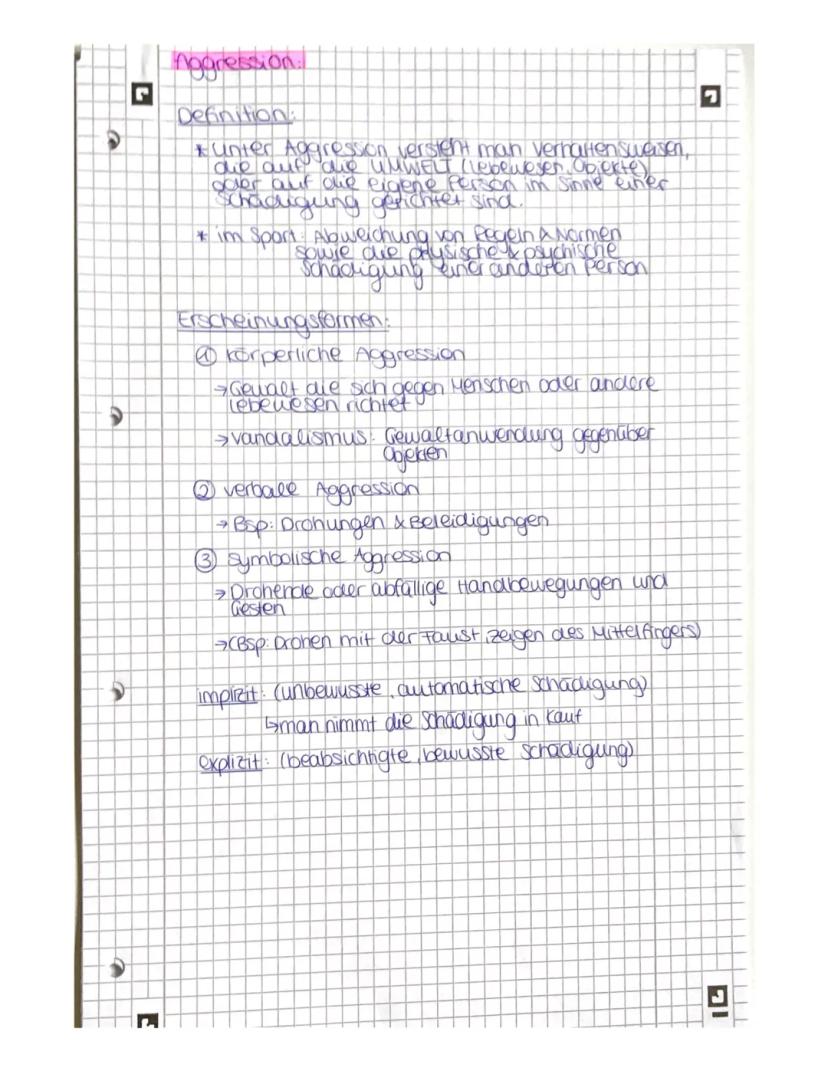 Aggression:
Definition:
* unter Aggression versteht man Verhaltensweisen,
die auf die UMWELT (Lebewesen, Objekte)
oder auf die eigene Person im Sinne einer
Schädigung gerichtet sind.
* im Sport: Abweichung von Regeln & Normen
sowie die physische & psychische
Schädigung einer anderen Person
Erscheinungsformen:
① körperliche Aggression
→ Gewalt die sich gegen Menschen oder andere
Lebewesen richtet
→ Vandalismus: Gewaltanwendung gegenüber
Objekten
② verbale Aggression
→ Bsp: Drohungen & Beleidigungen
③ symbolische Aggression
→ Drohende oder abfällige Handbewegungen und
Gesten
→ (Bsp: Drohen mit der Faust, zeigen des Mittelfingers)
implizit: (unbewusste, automatische Schädigung)
↳ man nimmt die Schädigung in Kauf
explizit: (beabsichtigte, bewusste Schädigung)